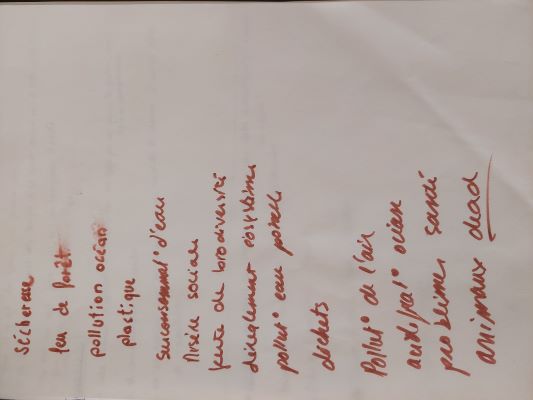 sécheresse
feu de forêt
pollution océan
plastique
surconsommat° d'eau
Misère sociale
perte de biodiversité
dérèglement écosystème
pollut° eau potable
déchets
Pollut° de l'air
acidificat° océan
problèmes santé
animaux dead